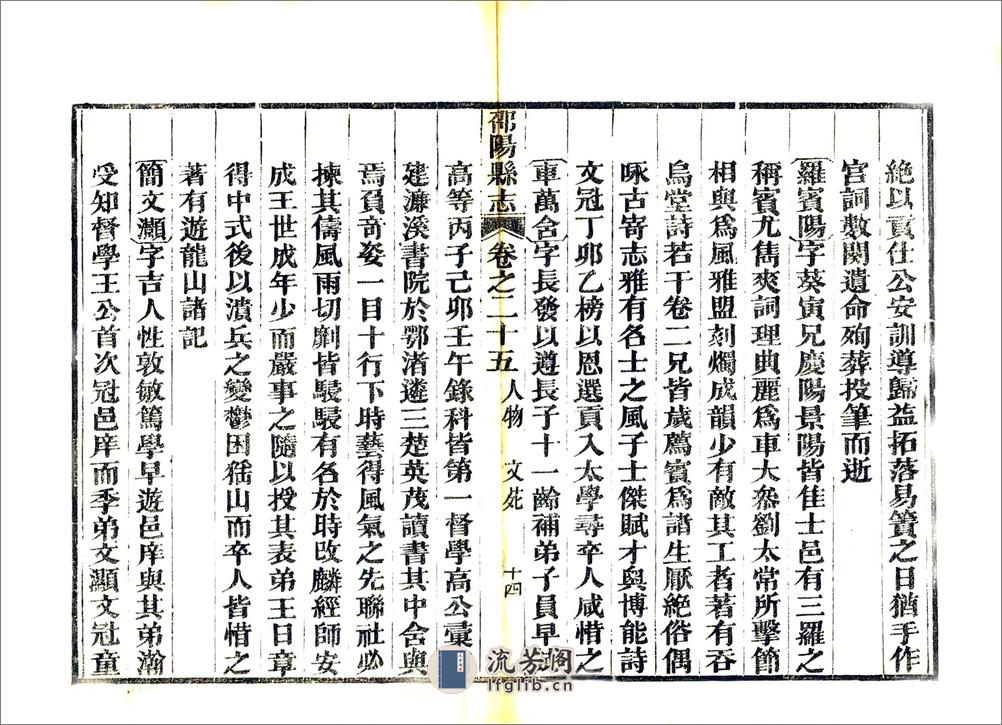 絶以貢仕公安訓導歸益拓落易簀之日猶手作
宮詞數闋遺命殉葬投筆而逝
羅賓陽字葵寅兄慶陽景陽皆佳士邑有三羅之
稱賓尤雋爽詞理典麗爲車大叅劉太常所擊節
相與爲風雅盟刻燭成韻少有敵其工者著有吞
烏堂詩若干卷二兄皆歲薦賓爲諸生厭絶俗偶
咏古寄志雅有名士之風子士傑賦才奥博能詩
文冠丁卯乙榜以恩選貢入太學尋卒人咸惜之
車萬含字長發以遵長子十一齡補弟子員早
高等丙子己卯壬午錄科皆第一督學高公彙
邵陽縣志 卷之二十五 人物 文苑 十四
建濂溪書院於鄂渚遴三楚英茂讀書其中含與
焉負竒姿一目十行下時藝得風氣之先聯社必
揀其儔風雨切劘皆駸駸有名於時改麟經師安
成王世成年少而嚴事之隨以授其表弟王日章
得中式後以潰兵之變鬱困猺山而卒人皆惜之
著有遊龍山諸記
簡文灝字吉人性敦敏篤學早遊邑庠與其弟瀚
受知督學王公首次冠邑庠而季弟文灝文冠童
流芳閣
lfglib.cn